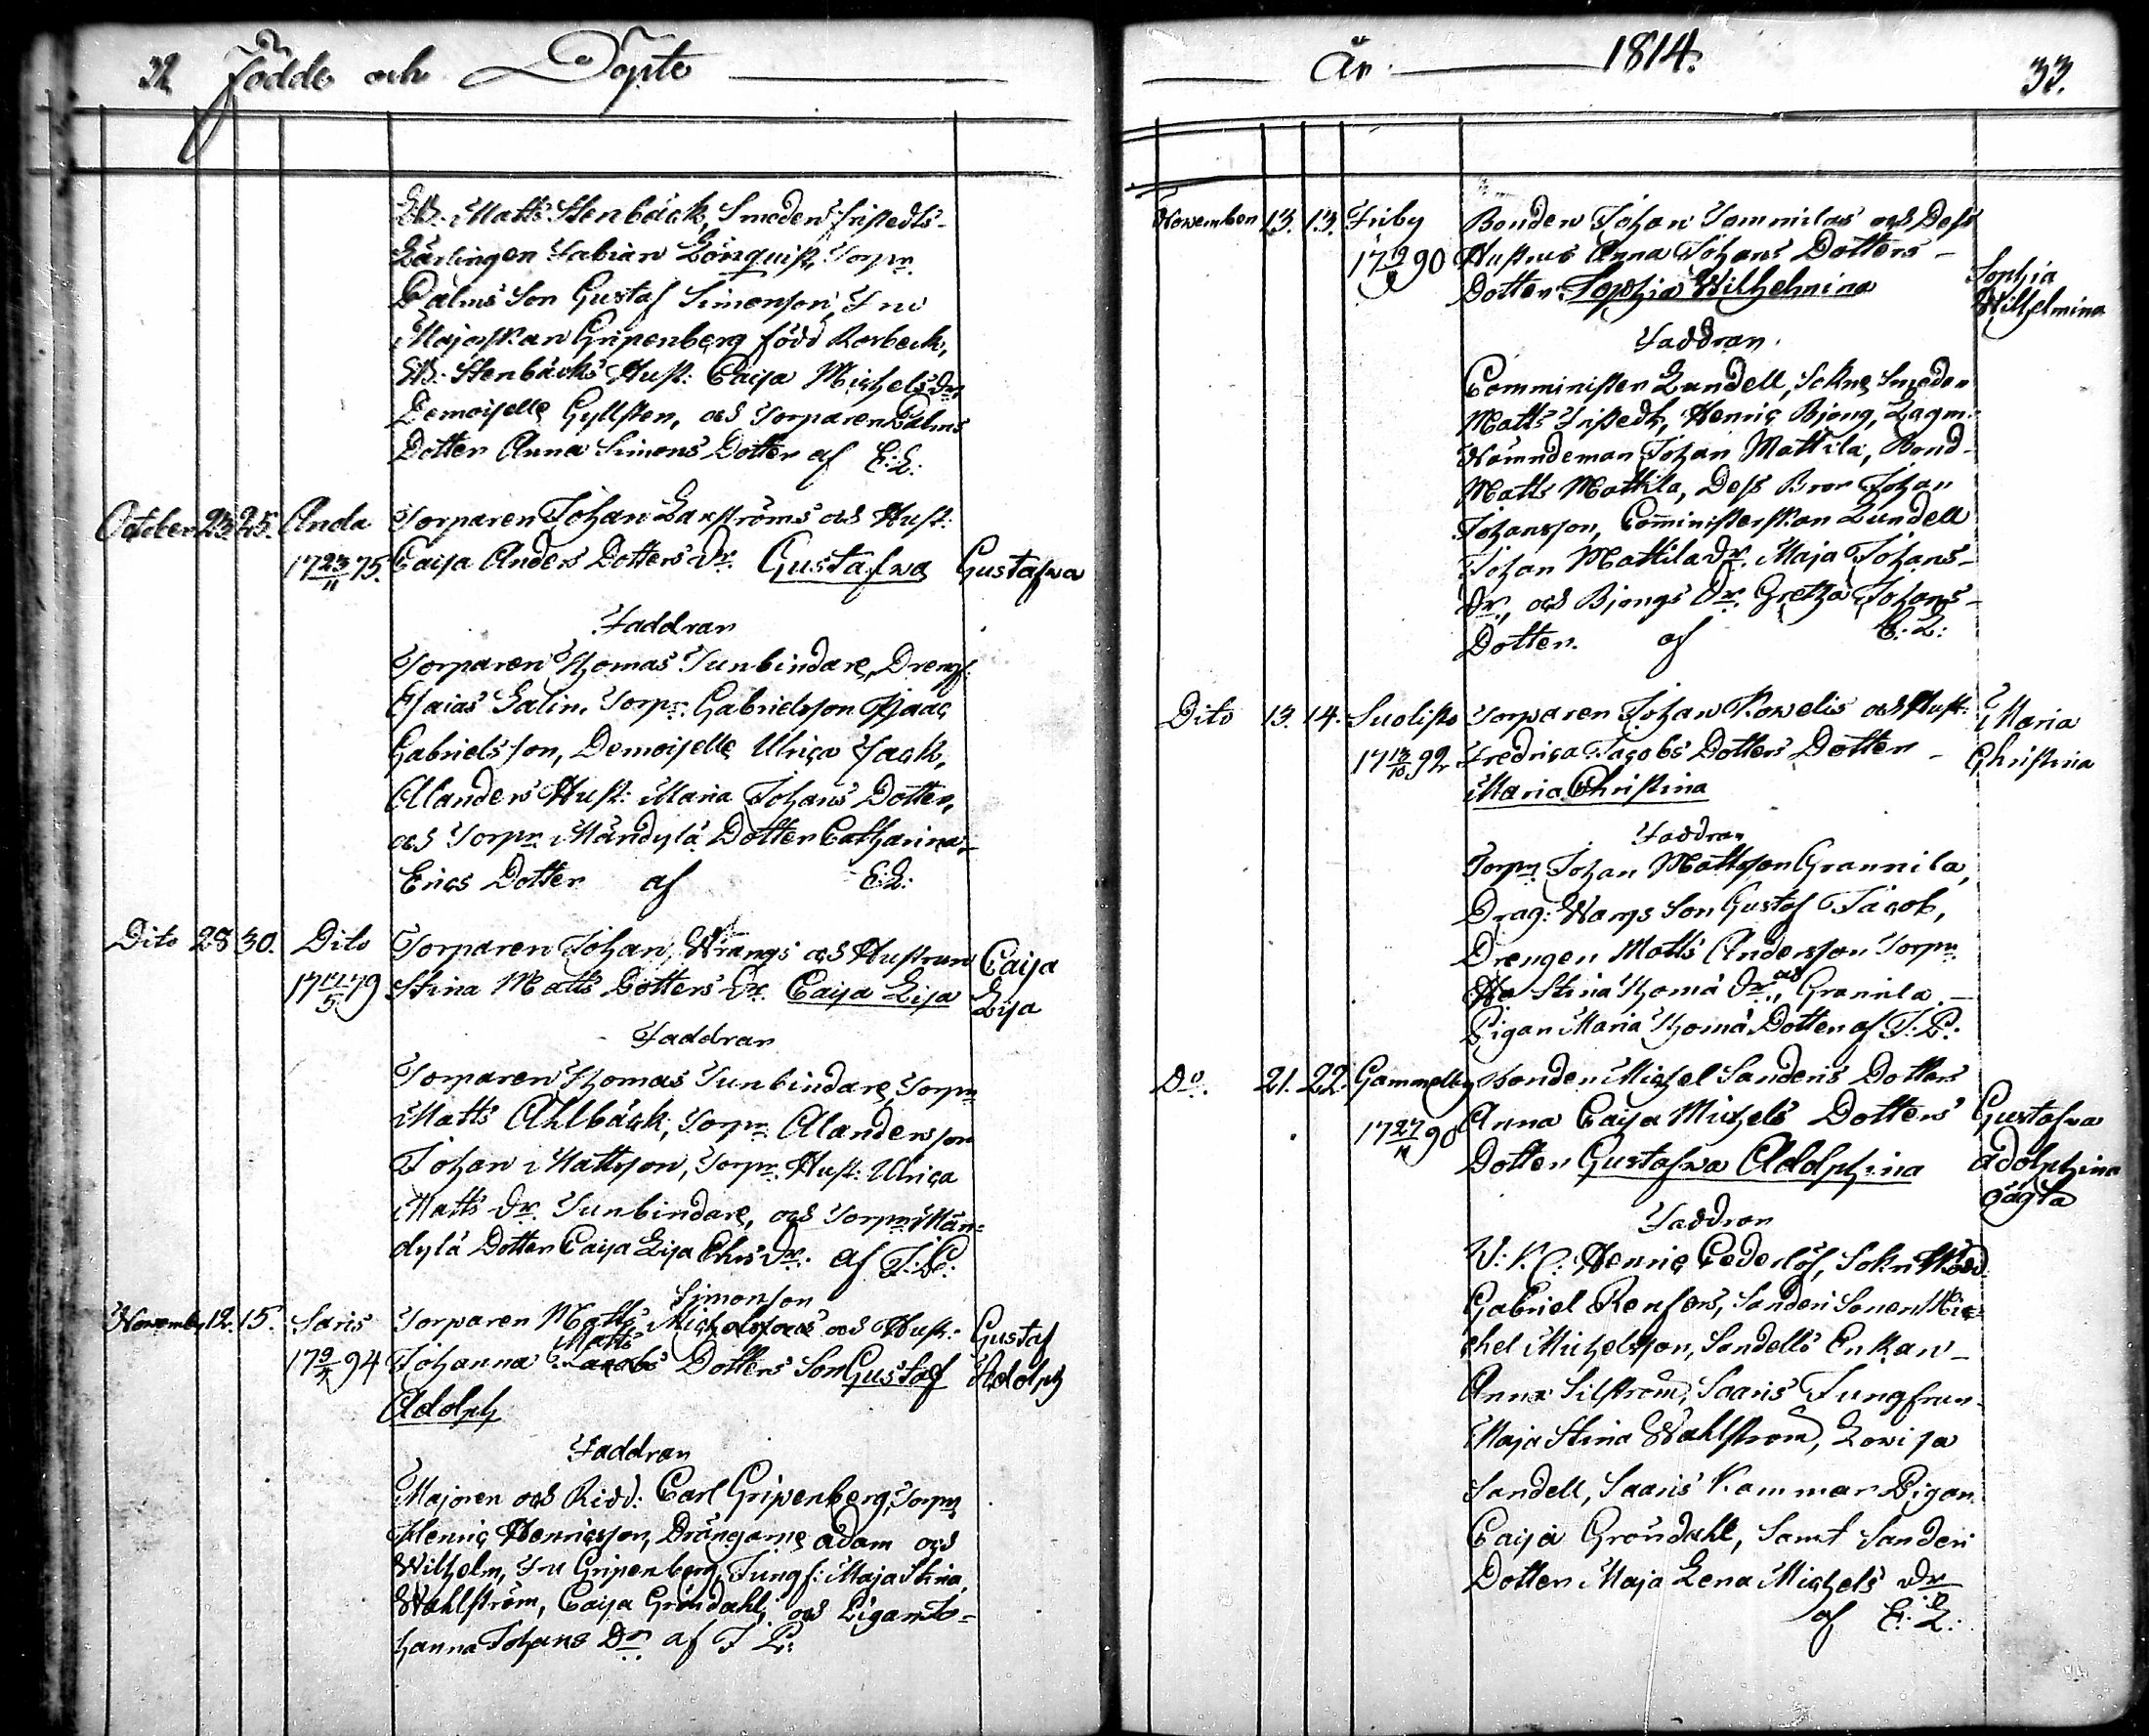 32 Födde och Döpte
EB. Matts Stenbäck, Smeden Fristedts
Lärlingen Fabian Lönquist, Torpn
Palms Son Gustaf Simonson, Fru
Majorskan Gripenberg född Rosbeck,
EB: Stenbäcks Hust: Caisa Michels Dr,
Demoiselle Gyllsten, och Torparen Palms
Dotter Anna Simons Dotter af E:L:
October 23. 25. Anda Torparen Johan Laxströms och Hust:
17 23/11 75. Caisa Anders Dotters Dr. Gustafwa Gustafwa
Faddrar
Torparen Thomas Tunbindare, Dreng:
Esaias Galin, Torpr: Gabrielsson Isaac
Gabrielsson, Demoiselle Ulrica Fack,
Alanders Hust: Maria Johans Dotter,
och Torpn Mändylä Dotter Catharina
Erics Dotter af E:L:
Dito 28 30. Dito Torparen Johan Wrangs och Hustrun Caisa
17 17/5 79 Stina Matts Dotters Dr. Caisa Lisa Lisa
Faddrar
Torparen Thomas Tunbindare, Torpn
Matts Ahlbäck, Torpn Alanderson
Johan Mattsson, Torpr. Hust: Ulrica
Matts Dr. Tunbindare, och Torpn Män=
dylä Dotter Caisa Lisa Ehrs Dr: af J:P:
Simonson
November 12. 15. Saris Torparen Matts Michelssons och Hust: Gustaf
Matts
17 9/7 94 Johanna Jacobs Dotters Son Gustaf Adolph
Adolph
Faddrar
Majoren och Ridd: Carl Gripenberg, Torpn
Henric Henricsson, Drängarne Adam och
Wilhelm, Fru Gripenberg, Jungf: Maja Stina
Wahlström, Caisa Gröndahl, och Pigan Jo=
hanna Johans Dr af J P:
År 1814. 33.
November 13. 13. Friby Bonden Johan Sommilas och Dess
17 19/9 90 Hustrus Anna Johans Dotters
Dotter Sophia Wilhelmina Sophia
Wilhelmina
Faddrar
Comministen Lundell, Sokne Smeden
Matts Fristedt, Henric Bjong, Lagm:
Nämndeman Johan Mattila, Bond
Matts Mattila, Dess Bror Johan
Johansson, Comministerskan Lundell
Johan Mattila Dr. Maja Johans
Dr., och Bjongs Dr. Gretha Johans
Dotter. af E:L:
Dito 13. 14. Suolisto Torparen Johan Kowelis och Hust: Maria
17 13/10 92 Fredrica Jacobs Dotters Dotter Christina
Maria Christina
Faddrar
Torpn Johan Mattsson Grannila,
Drag: Wargs Son Gustaf Jacob,
Drengen Matts Andersson Torpn
Ha Stina Thomä Dr., och Grannila
Pigan Maria Thomä Dotter af J:P:
Do. 21. 22. Gammelby Bonden Michel Sanderis Dotters
17 27/11 90 Anna Caisa Michels Dotters Gustafwa
Dotter Gustafwa Adolphina Adolphina
oägta
Faddrar
V: P: C: Henric Cederlöf, Sokn
Gabriel Renfors, Sanderi Sonen Mi=
chel Michelsson, Sandells Enkan
Anna Silström, Saaris Jungfrun
Maja Stina Wahlström, Lowisa
Sandell, Saaris Kammar Pigan
Caisa Gröndahl, Samt Sanderi
Dotter Maja Lena Michels Dr
af E: L: